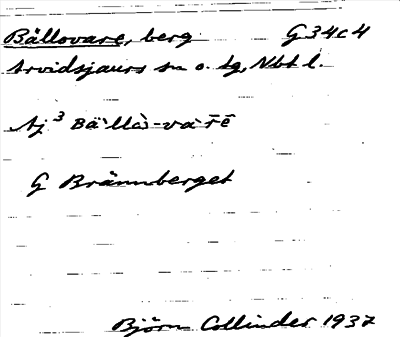 Bällovare, berg G34c4
Arvidsjaurs sn o. tg, Nbt l.
Aj³ Bä'llə̀-và·rē
G Brännberget
Björn Collinder 1937